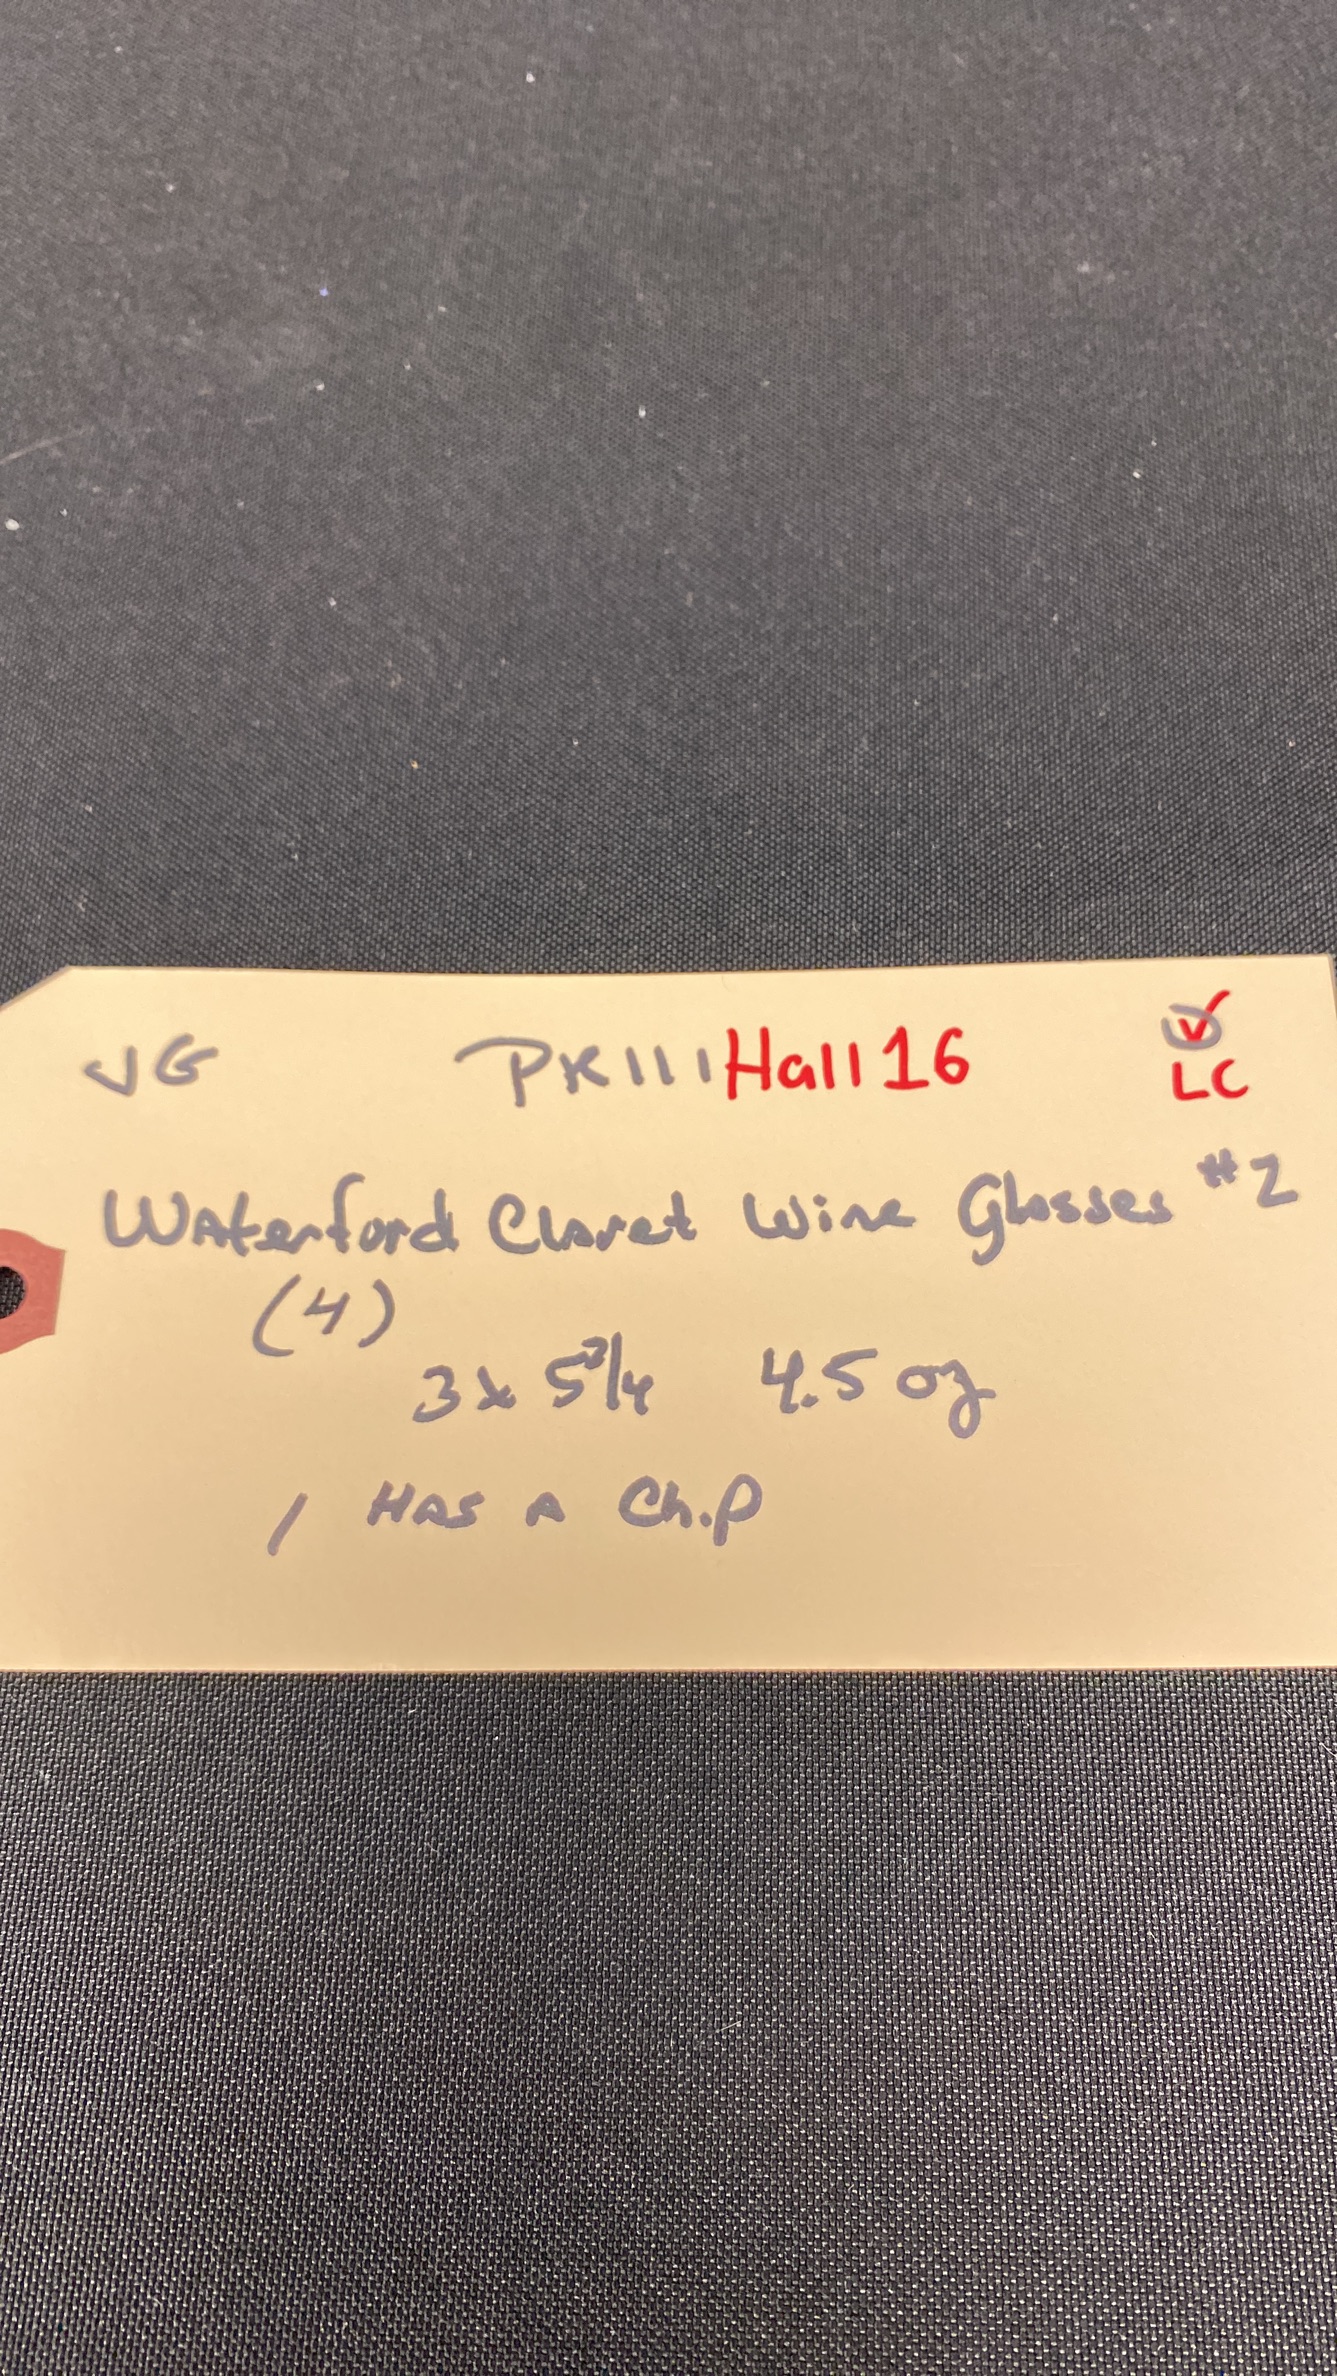 VG PK111 Hall 16 ✓
LC
Waterford Claret Wine Glasses #2
(4)
3x 5 3/4 4.5 oz
1 HAS A Chip